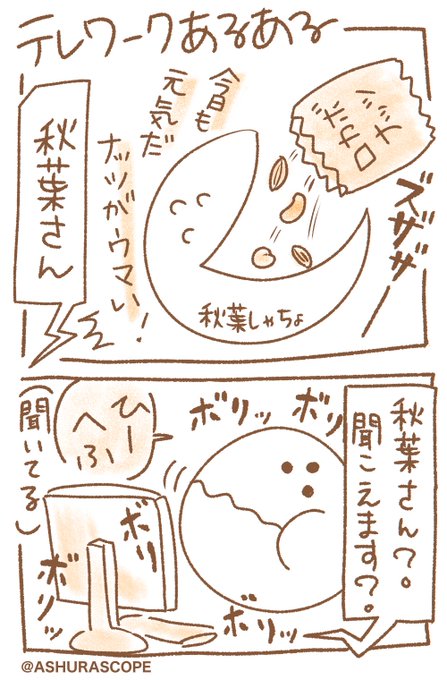 テレワークあるある
今日も
元気だ
ナッツがウマい!
ロカボ
ナッツ
ズザザ
秋葉さん
秋葉しゃちょ
秋葉さん?。
聞こえます?。
ボリッ
ボリッ
ひー
へふ
(聞いてる)
ボリ
ボリッ
ボリッ
@ASHURASCOPE